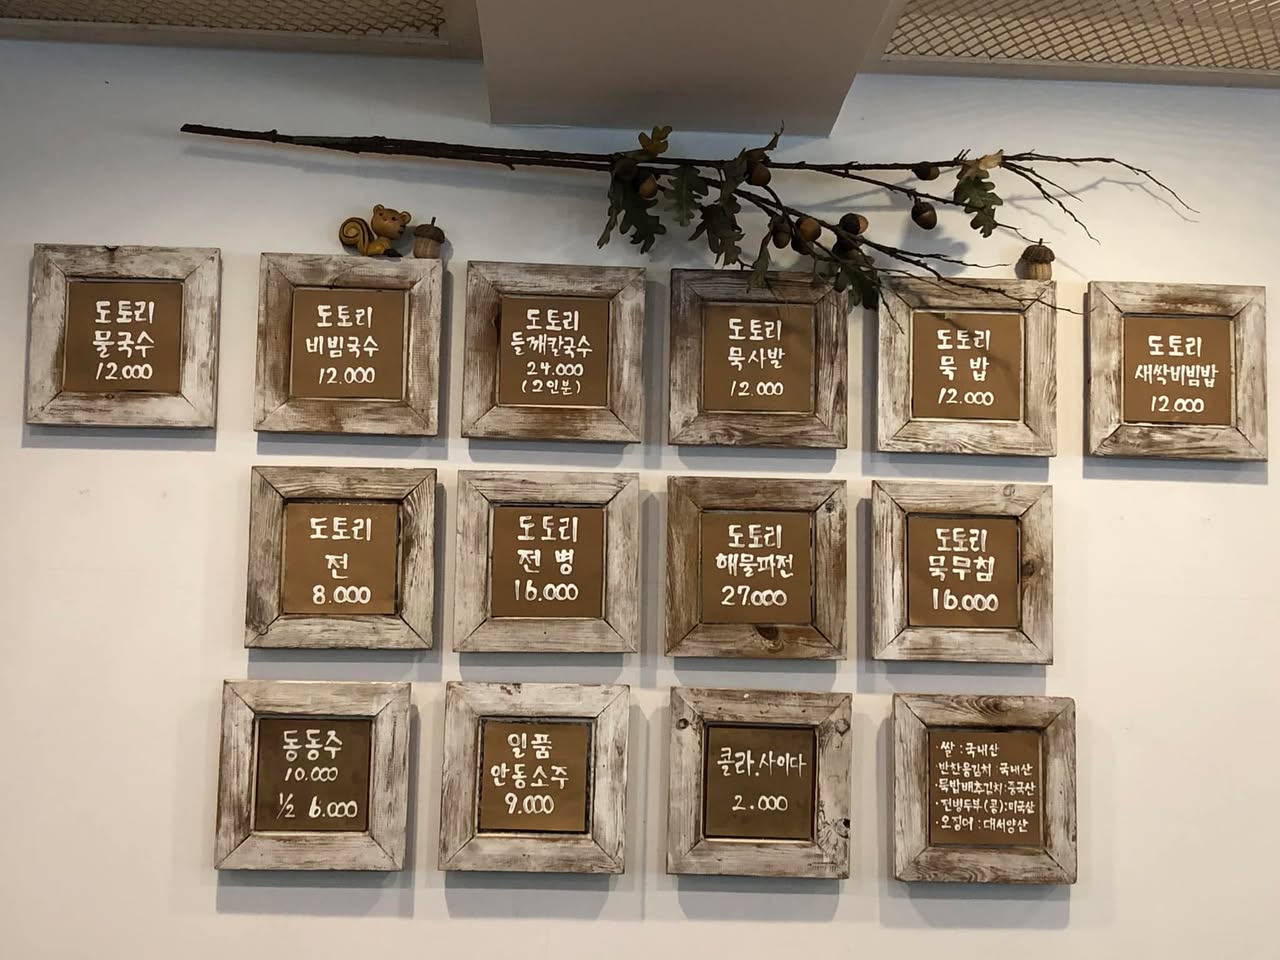 도토리
물국수
12.000
도토리
비빔국수
12.000
도토리
들깨칼국수
24.000
(2인분)
도토리
묵사발
12.000
도토리
묵밥
12.000
도토리
새싹비빔밥
12.000
도토리
전
8.000
도토리
전병
16.000
도토리
해물파전
27.000
도토리
묵무침
16.000
동동주
10.000
½ 6.000
일품
안동소주
9.000
콜라.사이다
2.000
·쌀:국내산
·반찬용김치:국내산
·묵밥배추김치:중국산
·전병두부(콩):미국산
·오징어:대서양산